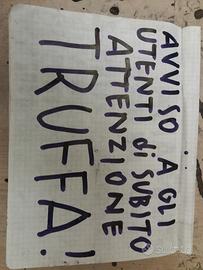 AVVISO A GLI
UTENTI di SUBITO
ATTENZIONE
TRUFFA!